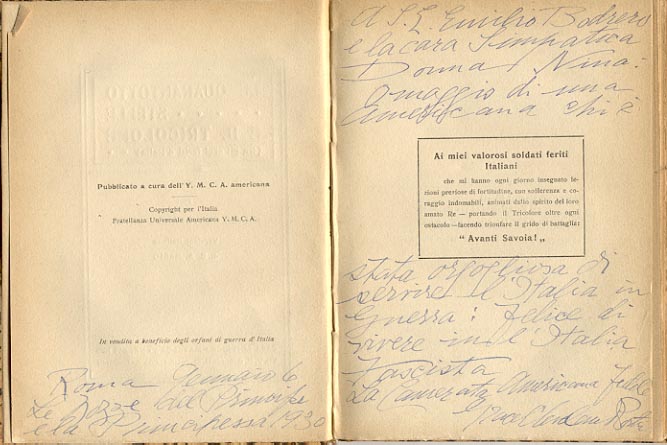 Pubblicato a cura dell'Y. M. C. A. americana
Copyright per l'Italia
Fratellanza Universale Americana Y. M. C. A.
In vendita a beneficio degli orfani di guerra d'Italia
Roma Gennaio 6
Le del Principe
e la Principessa 1930
A S. E. Emilio Bodrero
e la cara Simpatica
Donna Nina:
omaggio di una
Americana ch'è
Ai miei valorosi soldati feriti
Italiani
che mi hanno ogni giorno insegnato le-
zioni preziose di fortitudine, con sofferenza e co-
raggio indomabili, animati dallo spirito del loro
amato Re — portando il Tricolore oltre ogni
ostacolo — facendo trionfare il grido di battaglia:
" Avanti Savoia! „
stata orgogliosa di
servire l'Italia in
Guerra: felice di
vivere in l'Italia
Fascista
La Camerata Americana Fedele